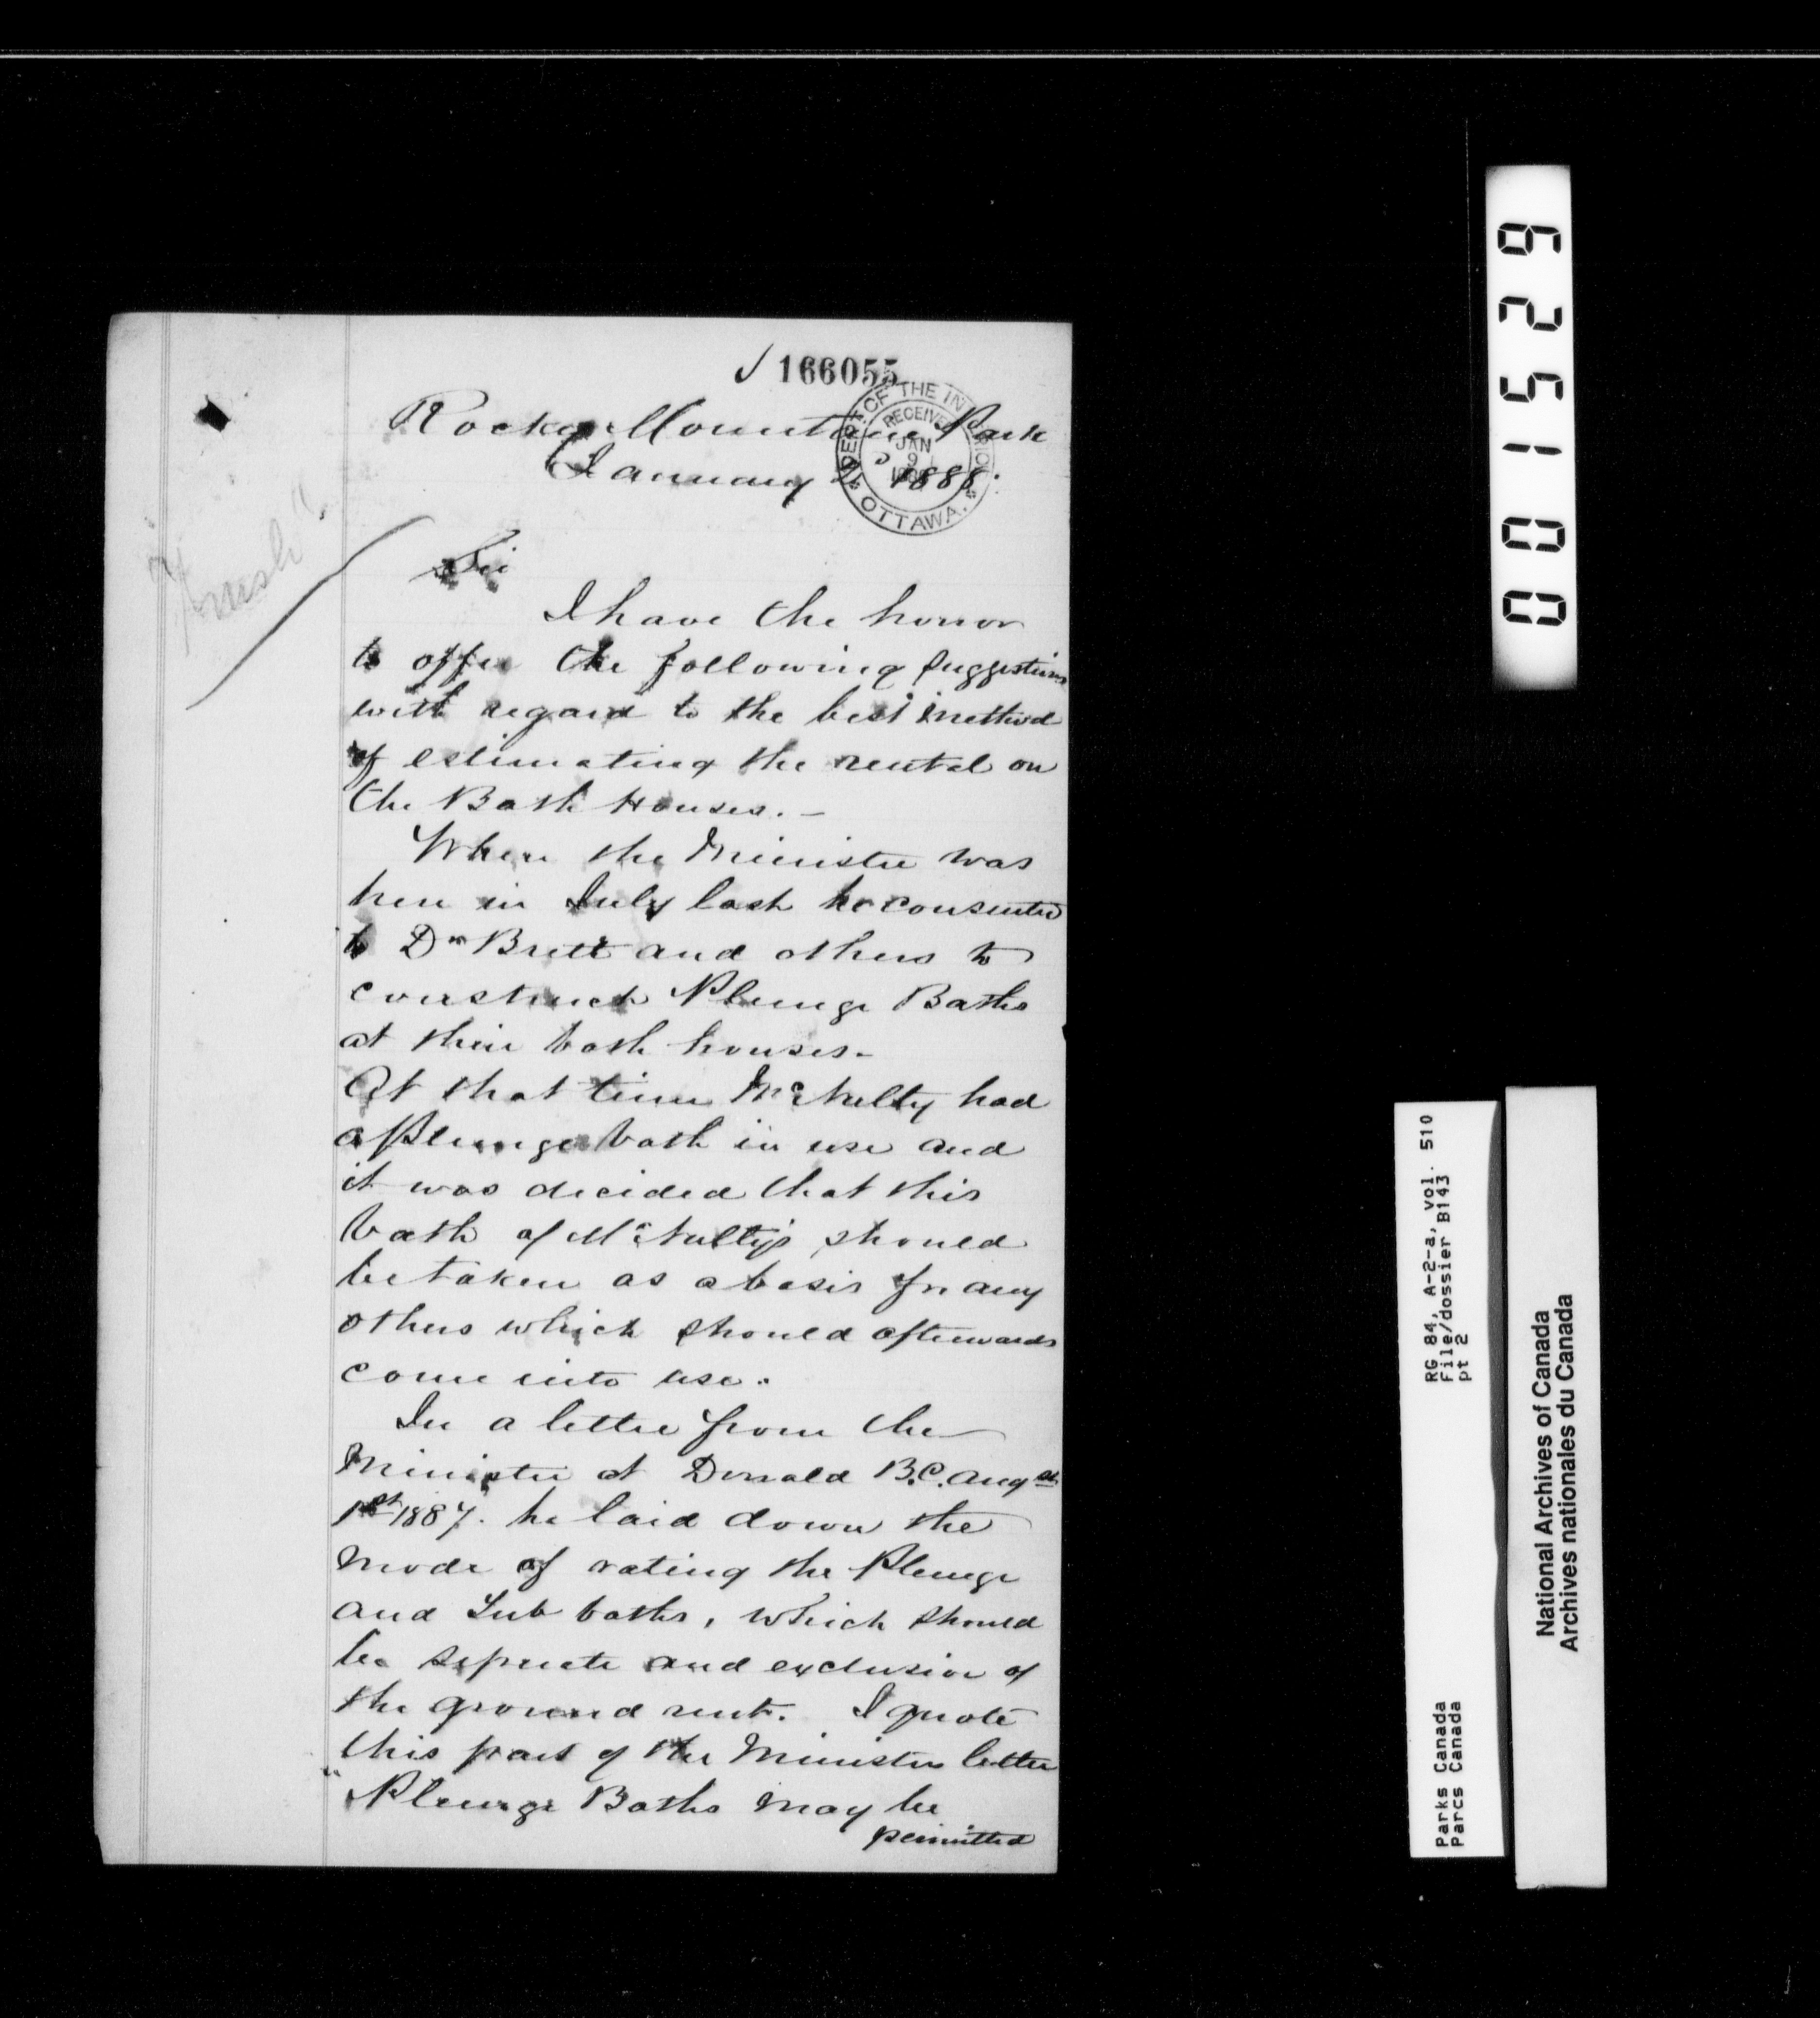 166055
Rocky Mountains Park
January 2 1888.
DEPT. OF THE INTERIOR
RECEIVED
JAN
9
OTTAWA.
Sir
I have the honor
to offer the following suggestions
with regard to the best method
of estimating the rental on
the Bath Houses. -
When the Minister was
here in July last he consented
to Dr Brett and others to
construct Plunge Baths
at their bath houses -
At that time McNulty had
a Plunge bath in use and
it was decided that this
bath of McNulty's should
be taken as a basis for any
others which should afterwards
come into use.
In a letter from the
Minister at Donald B.C. Augst
1st 1887. he laid down the
mode of rating the Plunge
and Tub baths, which should
be seperate and exclusive of
the ground rent. I quote
this part of the Ministers letter
"Plunge Baths may be
permitted
001529
RG 84, A-2-a, vol. 510
File/dossier B143
pt 2
Parks Canada
Parcs Canada
National Archives of Canada
Archives nationales du Canada